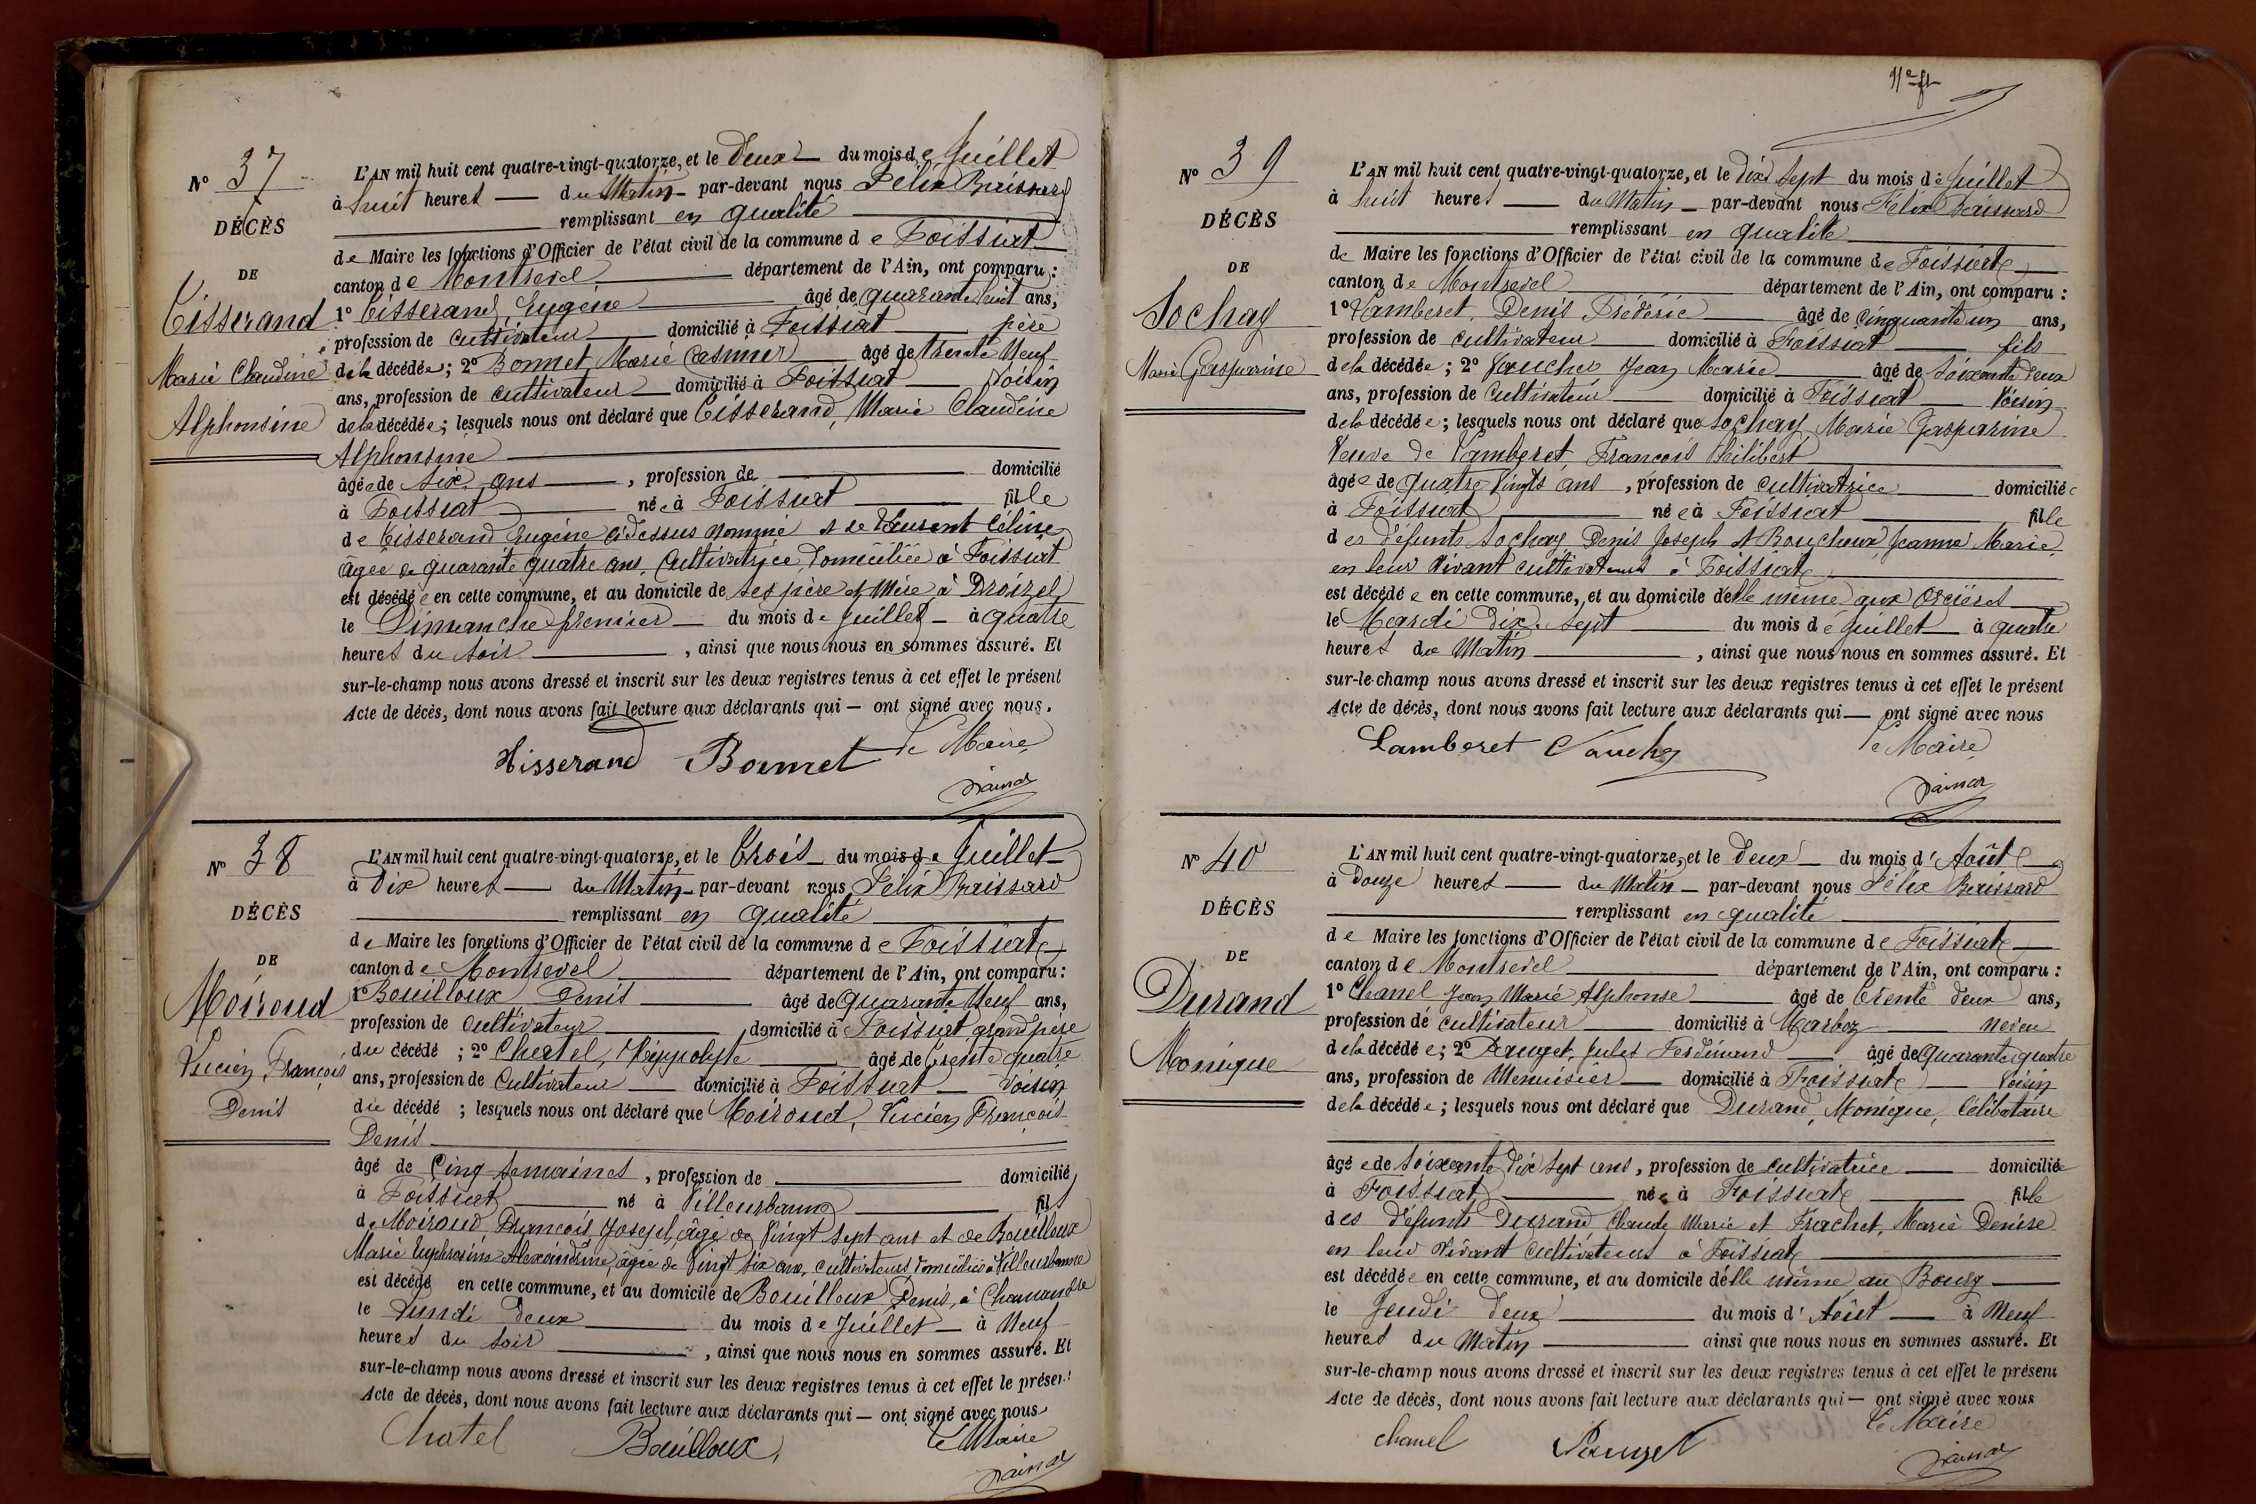 N° 37
DÉCÈS
DE
Tisserand
Marie Claudine
Alphonsine
L'AN mil huit cent quatre-vingt-quatorze, et le Deux du mois de Juillet
à huit heures du Matin par-devant nous Félix
remplissant en qualité
de Maire les fonctions d'Officier de l'état civil de la commune de Foissiat
canton de Montrevel département de l'Ain, ont comparu :
1° Tisserand, Eugène âgé de quarante huit ans,
profession de cultivateur domicilié à Foissiat père
de la décédée; 2° Bonnet, Marie Casimir âgé de trente Neuf
ans, profession de cultivateur domicilié à Foissiat Voisin
de la décédée; lesquels nous ont déclaré que Tisserand, Marie Claudine
Alphonsine
âgée de six ans, profession de domicilié
à Foissiat née à Foissiat fille
de Tisserand Eugène ci dessus nommé et de Céline
âgée de quarante quatre ans, Cultivatrice, domiciliée à Foissiat
est décédée en cette commune, et au domicile de ses père et Mère à
le Dimanche premier du mois de Juillet à quatre
heures du soir, ainsi que nous nous en sommes assuré. Et
sur-le-champ nous avons dressé et inscrit sur les deux registres tenus à cet effet le présent
Acte de décès, dont nous avons fait lecture aux déclarants qui — ont signé avec nous.
Tisserand Bonnet Le Maire
N° 38
DÉCÈS
DE
Moiroud
Lucien François
Denis
L'AN mil huit cent quatre-vingt-quatorze, et le Trois du mois de Juillet
à Dix heures du Matin par-devant nous Félix
remplissant en qualité
de Maire les fonctions d'Officier de l'état civil de la commune de Foissiat
canton de Montrevel département de l'Ain, ont comparu :
1° Bouilloux Denis âgé de quarante Neuf ans,
profession de cultivateur domicilié à Foissiat grand père
du décédé ; 2° Chatel, Hippolyte âgé de trente quatre
ans, profession de Cultivateur domicilié à Foissiat Voisin
du décédé ; lesquels nous ont déclaré que Moiroud, Lucien François
Denis
âgé de Cinq semaines, profession de domicilié
à Foissiat né à Villeurbanne fils
de Moiroud, François Joseph, âgé de Vingt sept ans et de Bouilloux
Marie Euphrosine Alexandrine, âgée de Vingt six ans, cultivateurs domiciliés à Villeurbanne
est décédé en cette commune, et au domicile de Bouilloux Denis, à
le Lundi Deux du mois de Juillet à Neuf
heures du soir, ainsi que nous nous en sommes assuré. Et
sur-le-champ nous avons dressé et inscrit sur les deux registres tenus à cet effet le présent
Acte de décès, dont nous avons fait lecture aux déclarants qui — ont signé avec nous
Chatel Bouilloux Le Maire
N° 39
DÉCÈS
DE
Sochay
Marie Gasparine
L'AN mil huit cent quatre-vingt-quatorze, et le dix Sept du mois de Juillet
à huit heures du Matin par-devant nous Félix
remplissant en qualité
de Maire les fonctions d'Officier de l'état civil de la commune de Foissiat
canton de Montrevel département de l'Ain, ont comparu :
1° Lamberet, Denis Frédéric âgé de cinquante un ans,
profession de cultivateur domicilié à Foissiat fils
de la décédée ; 2° Jean Marie âgé de soixante deux
ans, profession de Cultivateur domicilié à Foissiat Voisin
de la décédée ; lesquels nous ont déclaré que Sochay Marie Gasparine
Veuve de Lamberet, François Philibert
âgée de quatre Vingts ans, profession de cultivatrice domiciliée
à Foissiat née à Foissiat fille
des défunts Sochay Denis Joseph et Bouchoux, Jeanne Marie,
en leur Vivant cultivateurs à Foissiat
est décédée en cette commune, et au domicile d'elle même aux Orcières
le Mardi Dix Sept du mois de Juillet à quatre
heures du Matin, ainsi que nous nous en sommes assuré. Et
sur-le-champ nous avons dressé et inscrit sur les deux registres tenus à cet effet le présent
Acte de décès, dont nous avons fait lecture aux déclarants qui — ont signé avec nous
Lamberet Le Maire
N° 40
DÉCÈS
DE
Durand
Monique
L'AN mil huit cent quatre-vingt-quatorze, et le Deux du mois d'Août
à Douze heures du Matin par-devant nous Félix
remplissant en qualité
de Maire les fonctions d'Officier de l'état civil de la commune de Foissiat
canton de Montrevel département de l'Ain, ont comparu :
1° Chanel Jean Marie Alphonse âgé de Trente deux ans,
profession de cultivateur domicilié à Marboz neveu
de la décédée; 2° Pauget, Jules Ferdinand âgé de quarante quatre
ans, profession de Menuisier domicilié à Foissiat Voisin
de la décédée; lesquels nous ont déclaré que Durand, Monique, Célibataire
âgée de soixante dix sept ans, profession de cultivatrice domiciliée
à Foissiat née à Foissiat fille
des défunts Durand Claude Marie et Frachet, Marie Denise
en leur Vivant Cultivateurs à Foissiat
est décédée en cette commune, et au domicile d'elle même au Bourg
le Jeudi deux du mois d'Août à Neuf
heures du Matin ainsi que nous nous en sommes assuré. Et
sur-le-champ nous avons dressé et inscrit sur les deux registres tenus à cet effet le présent
Acte de décès, dont nous avons fait lecture aux déclarants qui — ont signé avec nous
chanel Pauget Le Maire